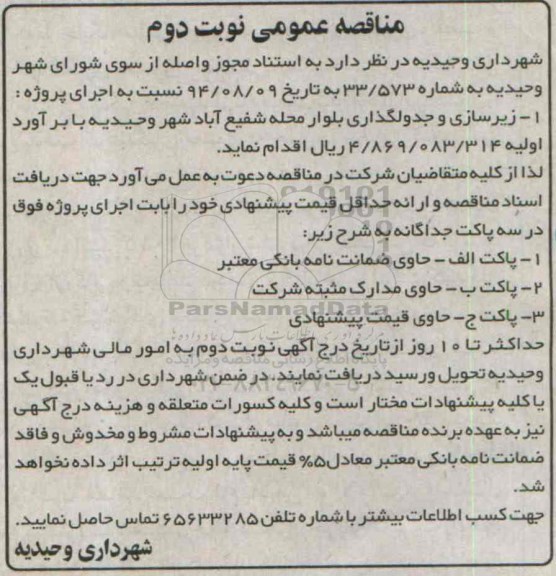 مناقصه عمومی نوبت دوم
شهرداری وحیدیه در نظر دارد به استناد مجوز واصله از سوی شورای شهر
وحیدیه به شماره ۳۳/۵۷۳ به تاریخ ۹۴/۰۸/۰۹ نسبت به اجرای پروژه :
۱- زیرسازی و جدولگذاری بلوار محله شفیع آباد شهر وحیدیه با بر آورد
اولیه ۴/۸۶۹/۰۸۳/۳۱۴ ریال اقدام نماید.
لذا از کلیه متقاضیان شرکت در مناقصه دعوت به عمل می آورد جهت دریافت
اسناد مناقصه و ارائه حداقل قیمت پیشنهادی خود را بابت اجرای پروژه فوق
در سه پاکت جداگانه به شرح زیر:
۱- پاکت الف - حاوی ضمانت نامه بانکی معتبر
۲- پاکت ب - حاوی مدارک مثبته شرکت
ParsNamadData
۳- پاکت ج- حاوی قیمت پیشنهادی
حداکثر تا ۱۰ روز از تاریخ درج آگهی نوبت دوم به امور مالی شهرداری
وحیدیه تحویل و رسید دریافت نمایند. در ضمن شهرداری در رد یا قبول یک
یا کلیه پیشنهادات مختار است و کلیه کسورات متعلقه و هزینه درج آگهی
نیز به عهده برنده مناقصه میباشد و به پیشنهادات مشروط و مخدوش و فاقد
ضمانت نامه بانکی معتبر معادل ۵% قیمت پایه اولیه ترتیب اثر داده نخواهد
شد.
جهت کسب اطلاعات بیشتر با شماره تلفن ۶۵۶۳۳۲۸۵ تماس حاصل نمایید.
شهرداری وحیدیه